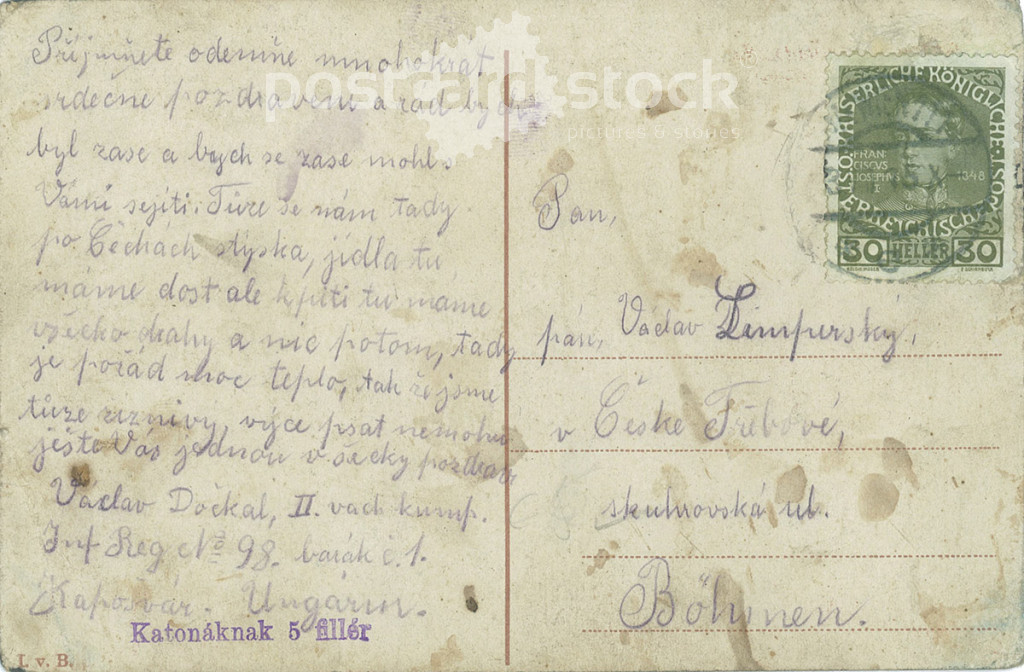 Příjmněte odemňe mnohokrát
srdečné pozdravení a rád bych
byl zase a bych se zase mohl s
Vámi sejíti. Túze se nám tady
po Čechách stýska, jídla tu
máme dost ale k píti tu máme
všecko drahy a nic potom, tady
je pořád moc teplo, tak že jsme
túze žiznivy, výce psat nemohu
ještě Vás jednou vsecky pozdrav
Václav Dočkal, II. vach kump.
Inf Reg No 98. barák č. 1.
Kaposvár. Ungarn.
Katonáknak 5 fillér
I. v. B.
postcard stock
pictures & stories
KAISERLICHE KÖNIGLICHE
ÖSTERREICHISCHE POST
FRAN
CISCVS
JOSEPHVS
I
1848
30 HELLER 30
Pan,
pán, Václav Limperský,
v České Třebové,
ul.
Böhmen.